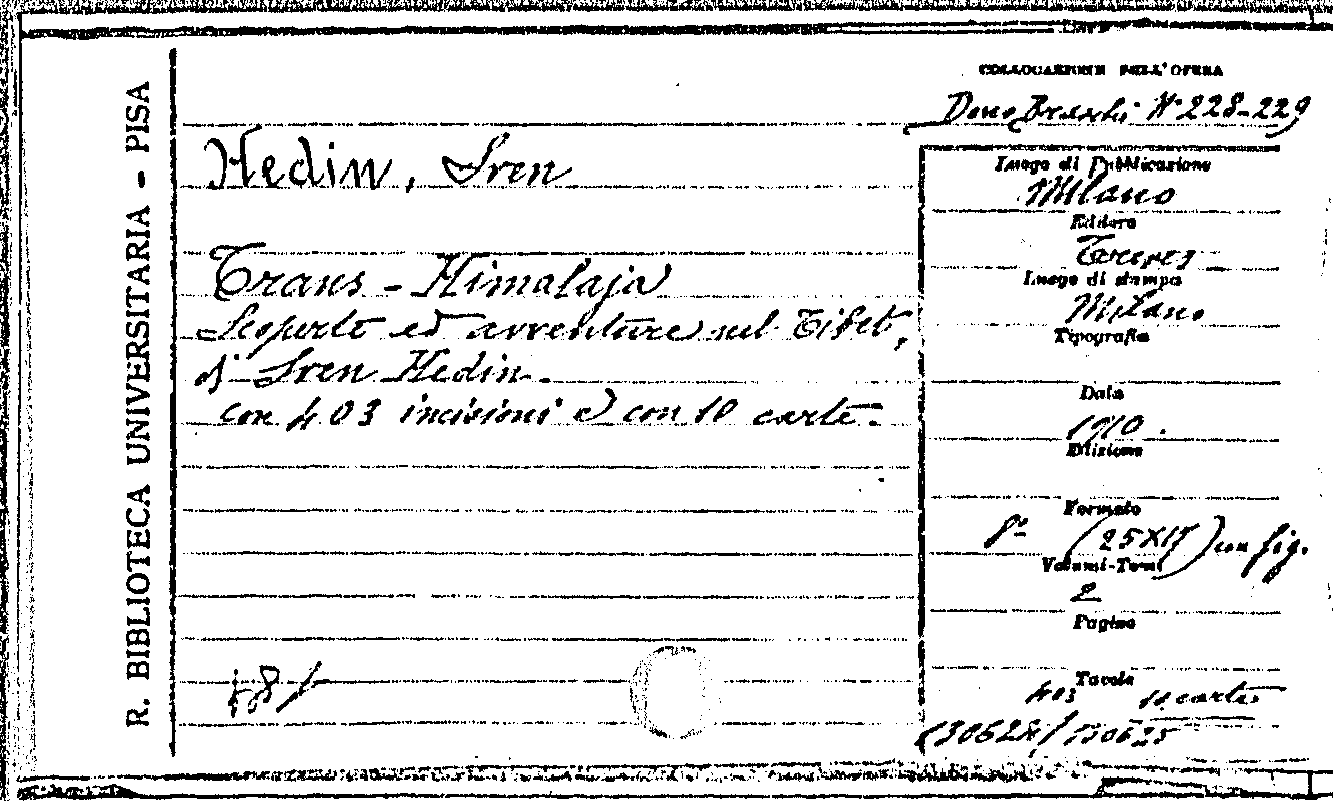 R. BIBLIOTECA UNIVERSITARIA - PISA
COLLOCAZIONE DELL'OPERA
Dono N° 228-229
Hedin, Sven
Trans-Himalaja
Scoperte ed avventure nel Tibet,
di Sven Hedin.
con 403 incisioni e con 10 carte.
Luogo di Pubblicazione
Milano
Editore
Treves
Luogo di stampa
Milano
Tipografia
Data
1910.
Edizione
Formato
8° (25X17) con fig.
Volumi-Tomi
2
Pagine
Tavole
403 carte
130624/130625